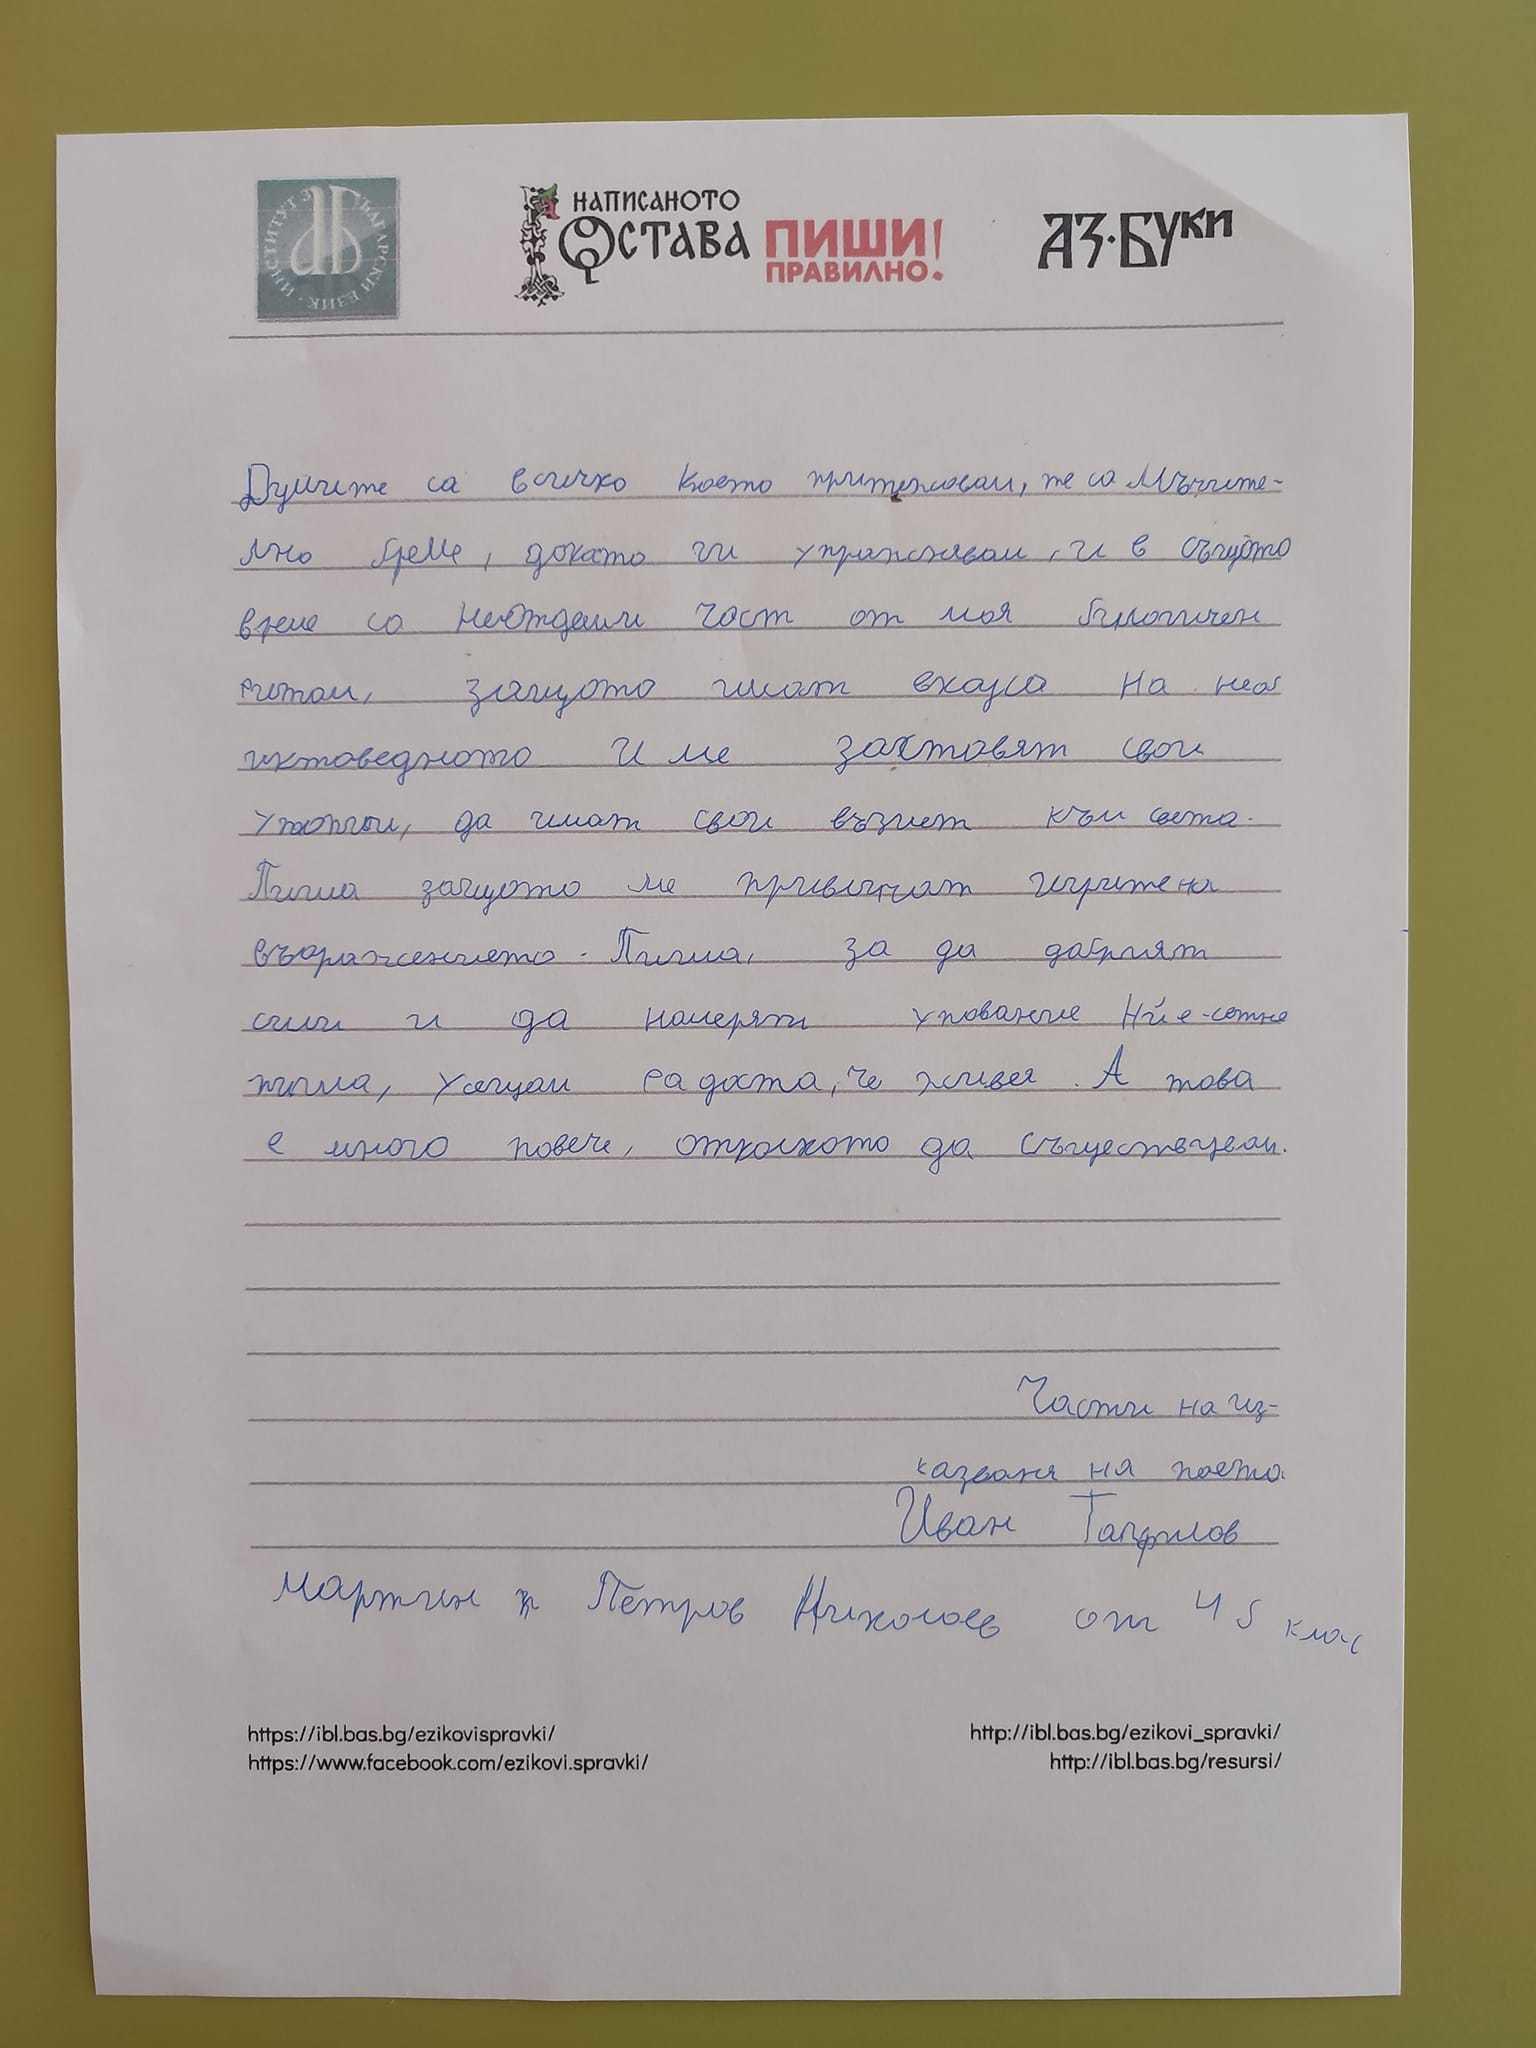 ИНСТИТУТ ЗА БЪЛГАРСКИ ЕЗИК
НАПИСАНОТО
ОСТАВА ПИШИ
ПРАВИЛНО!
АЗ·БУКИ
Думите са всичко което притежавам, те са Мъчите-
лно бреме, докато ги упражнявам, и в същото
време са неотделим част от моя биологичен
ритъм, защото имат вкуса на
И ме свои
да имат свои възглет към света.
Пиша защото ме привличат игрите на
въоражението. Пиша, за да
сили и да намерят упование
пиша, усещам радоста, че живея. А това
е много повече, отколкото да съществувам.
Части на из-
казваня ня поета
Иван
Мартин Петров Николаев от 4 б клас
https://ibl.bas.bg/ezikovispravki/
https://www.facebook.com/ezikovi.spravki/
http://ibl.bas.bg/ezikovi_spravki/
http://ibl.bas.bg/resursi/